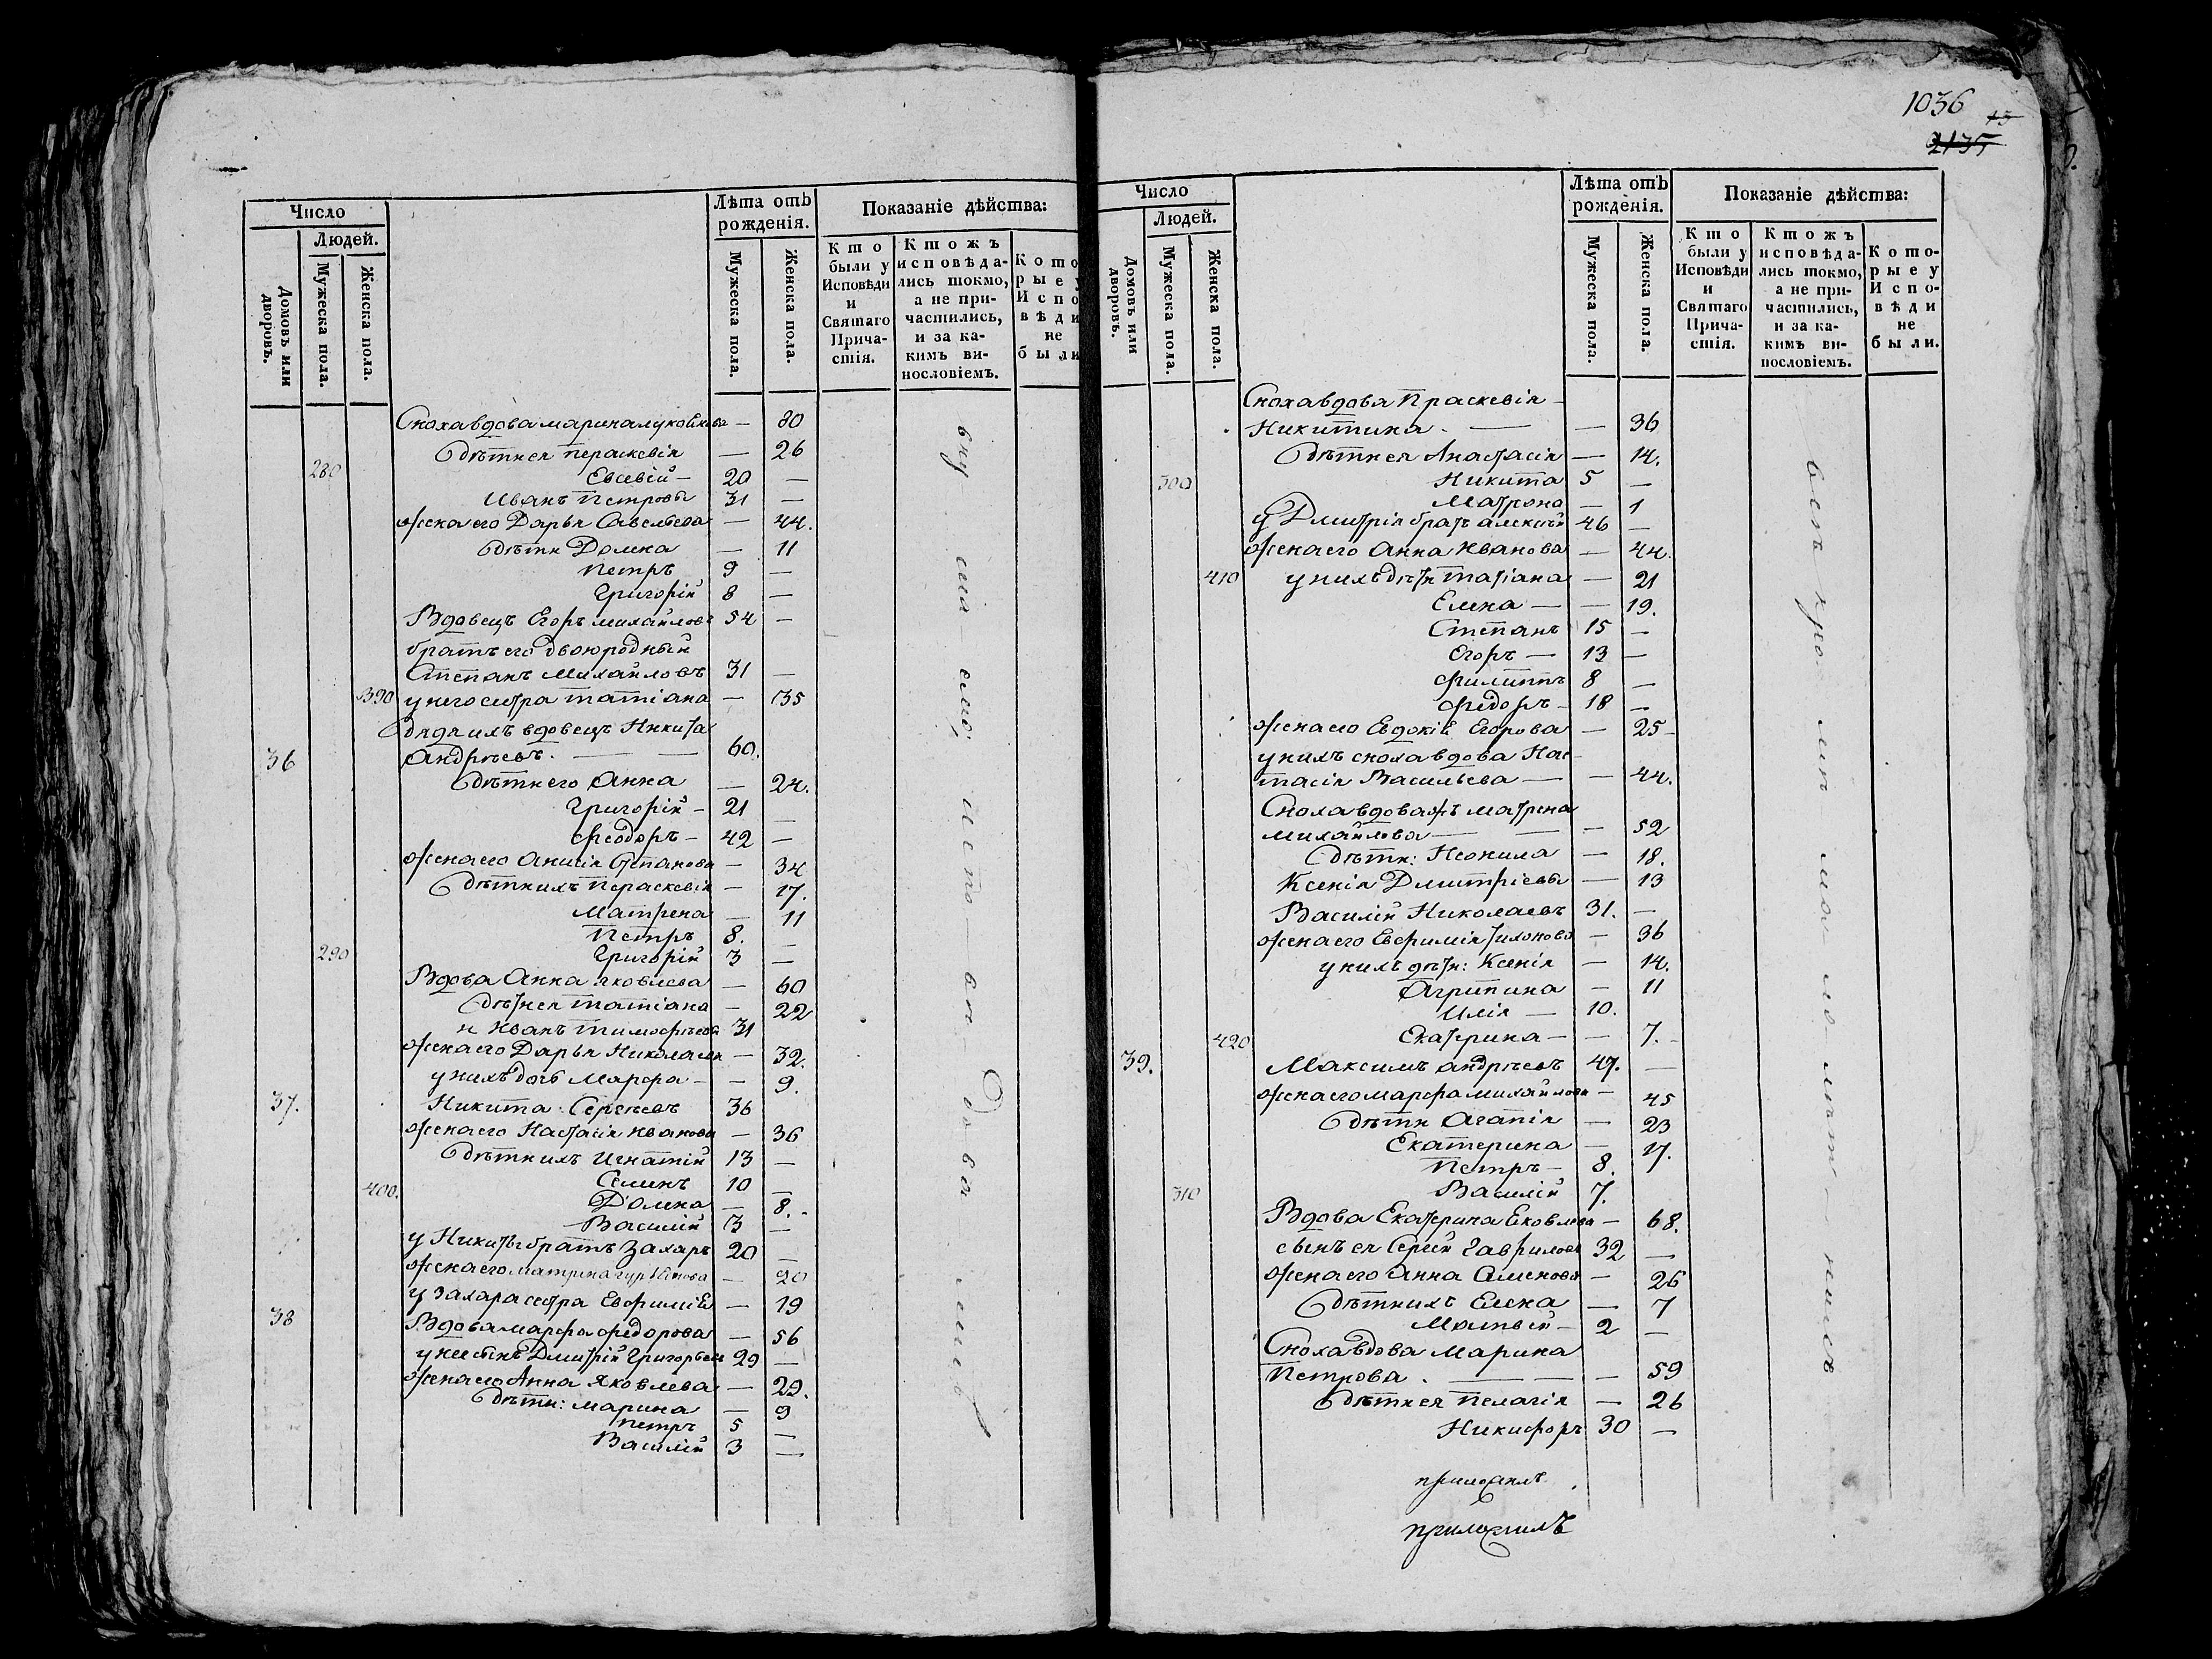 Число
Людей.
Домовъ или дворовъ.
Мужеска пола.
Женска пола.
Лѣта отъ рожденія.
Мужеска пола.
Женска пола.
Показаніе дѣйства:
Кто были у Исповѣди и Святаго Прича-стія.
Ктожъ исповѣда-лись токмо, а не при-частились, и за ка-кимъ ви-нословіемъ.
Кото рые у Испо вѣди не были
Сноха вдова марина — 80
дѣти ея параскевія — 26
280 Евсевій — 20 —
Иванъ Петровъ 31 —
жена его Дарья Савельева — 44.
дѣти Домна — 11
Петръ 9 —
Григорій 8 —
Вдовецъ Егоръ михайловъ 54 —
братъ его двоюродный
Степанъ Михайловъ 31 —
390 у него сестра татіана — 35
дядя ихъ вдовецъ Никита
36 Андрѣевъ. — — 60.
дѣти его Анна — 24.
Григорій — 21 —
Феодоръ — 42 —
жена его Анисія Степанова — 34
дѣти ихъ Параскевія — 17.
Матрена — 11
Петръ 8. —
290 Григорій 3 —
Вдова Анна яковлева — 60
дѣти ея татіана — 22
и Иванъ тимофѣевъ 31
жена его Дарья Николаева — 32.
у нихъ дочь Марфа — — 9.
37. Никита Сергѣевъ 36
жена его Настасія Иванова — 36
дѣти ихъ Игнатій 13 —
Семенъ 10 —
400. Домна — 8. -
Василій 3 —
у Никиты братъ Захаръ 20 —
жена его матрена — 20
у Захара сестра Евфимія — 19
38 Вдова марфа федорова — 56
у нее сынъ Дмитрій Григорьевъ 29 —
жена его Анна Яковлева — 29.
дѣти: марина — 9
петръ 5 —
Василій 3 —
1036
13
2135
Число
Людей.
Домовъ или дворовъ.
Мужеска пола.
Женска пола.
Лѣта отъ рожденія.
Мужеска пола.
Женска пола.
Показаніе дѣйства:
Кто были у Исповѣди и Святаго Прича-стія.
Ктожъ исповѣда-лись токмо, а не при-частились, и за ка-кимъ ви-нословіемъ.
Кото-рые у Испо-вѣди не были.
Сноха вдова Праскевія —
Никитина. — — 36
дѣти ея Анастасія — 14.
300 Никита 5 —
Матрона — 1
у Дмитрія братъ алексѣй 46 —
жена его Анна Иванова — 44.
410 у нихъ дѣти татіана — 21
Елена — — 19.
Степанъ 15 —
Егоръ — 13 —
Филиппъ 8 —
Федоръ — 18 —
жена его Евдокія Егорова — 25 -
у нихъ сноха вдова Нас-
тасія Васильева — — 44.
Сноха вдова матрена
михайлова — — — 52
дѣти: Неонила — 18.
Ксенія Дмитріевы — 13
Василій Николаевъ 31. —
жена его Евфимія тихонова — 36
у нихъ дѣти: Ксенія — 14.
Агрипина — 11
Илія — 10.
420 Екатерина — — 7. -
39. Максимъ андрѣевъ 47. —
жена его марфа михайлова — 45
дѣти Агапія — 23
Екатерина — 17.
Петръ — 8.
310 Василій 7.
Вдова Екатерина Яковлева — 68.
сынъ ея Сергѣй Гавриловъ 32 —
жена его Анна Семенова — 26
дѣти ихъ Елена — 7
Матвѣй — 2 —
Сноха вдова Марина
Петрова. — — — 59
дѣти ея Пелагія — 26
Никифоръ 30 —
приложилъ